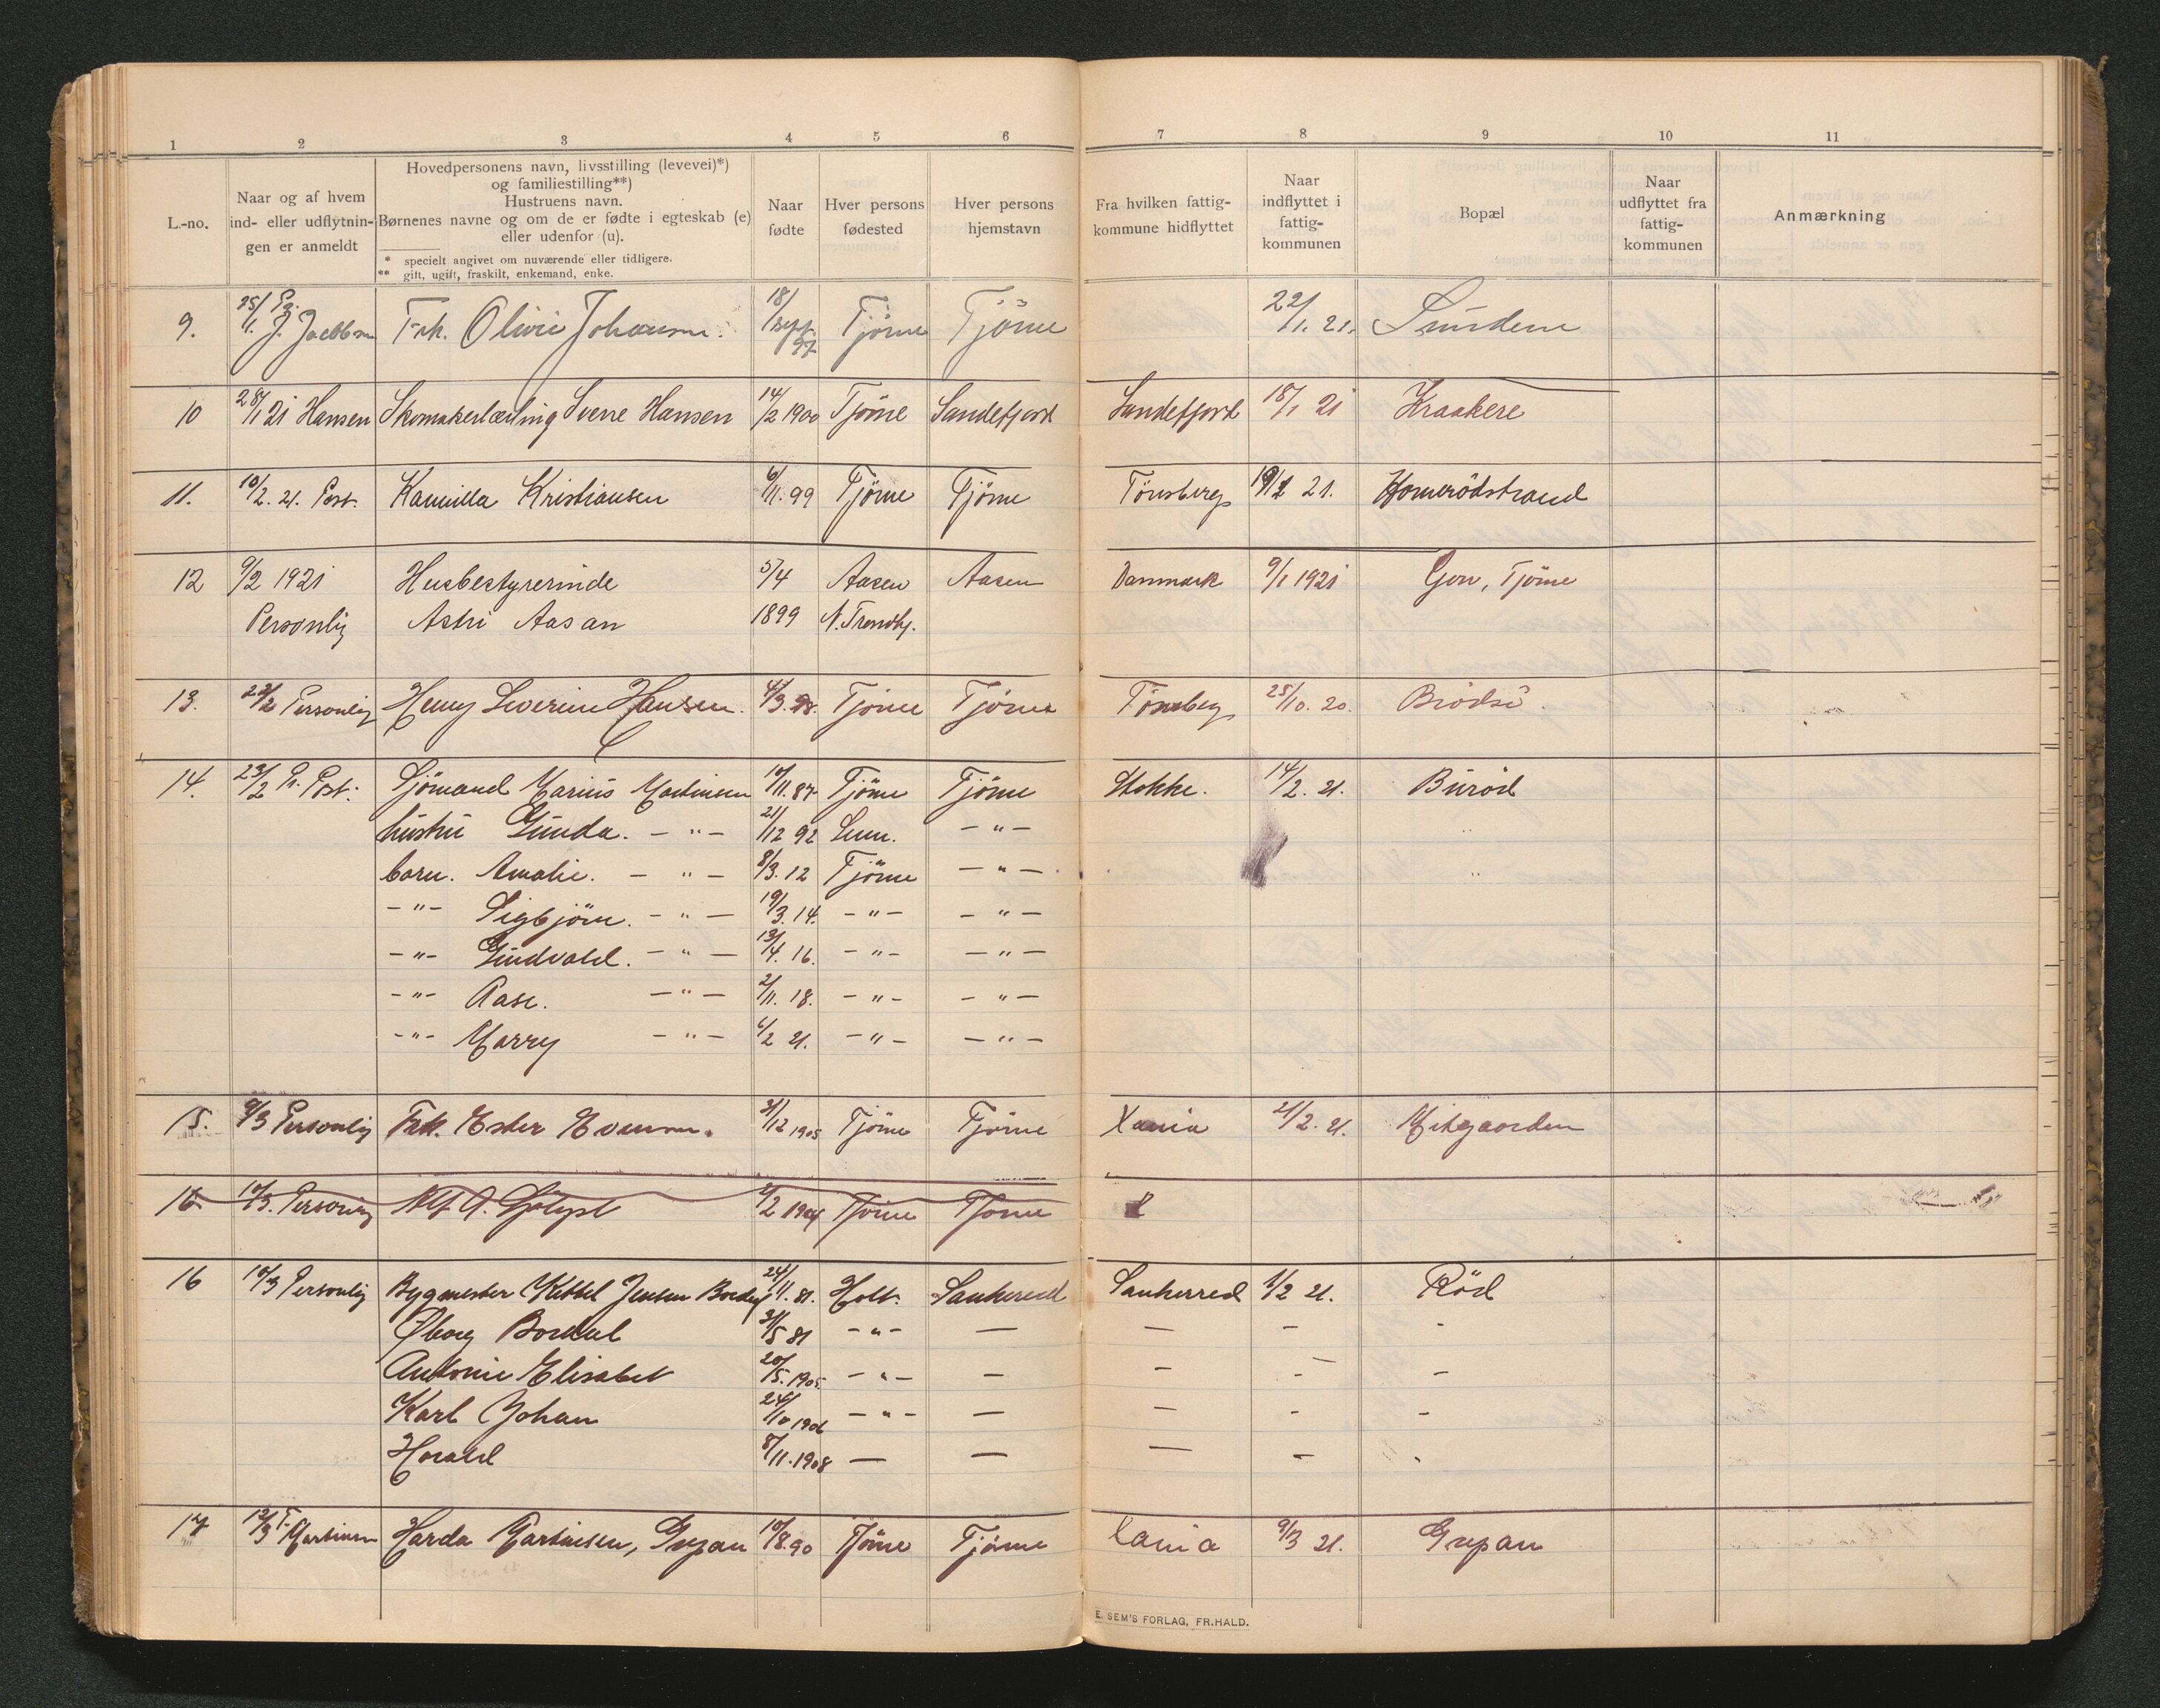 1 2 3 4 5 6 7 8 9 10 11
L.-no.
Naar og af hvem
ind- eller udflytnin-
gen er anmeldt
Hovedpersonens navn, livsstilling (levevei)*)
og familiestilling**)
Hustruens navn.
Børnenes navne og om de er fødte i egteskab (e)
eller udenfor (u).
* specielt angivet om nuværende eller tidligere.
** gift, ugift, fraskilt, enkemand, enke.
Naar
fødte
Hver persons
fødested
Hver persons
hjemstavn
Fra hvilken fattig-
kommune hidflyttet
Naar
indflyttet i
fattig-
kommunen
Bopæl
Naar
udflyttet fra
fattig-
kommunen
Anmærkning
9. 25/1. J. Jacobsen Frk. Olivie Johansen. 18/sept. 97 Tjøme Tjøme 22/1. 21. Sundene
10 28/1 21 Hansen Skomakerlærling Sverre Hansen 14/2 1900 Tjöme Sandefjord Sandefjord 18/1 21 Kraakere
11. 10/2. 21. Post. Kamilla Kristiansen 6/11. 99 Tjöme Tjöme Tönsberg 21. Homerödstrand
12 9/2 1921 Husbestyrerinde 5/4 Aasen Aasen Danmark 9/1 1921 Gon, Tjöme
Personlig Astri Aasan 1899 N. Trondhj.
13. 22/2 Personlig Henny Severine Hansen. 4/3. 98. Tjöme Tjöme Tönsberg 25/10. 20. Brödsö.
14. 23/2 Pr. Post. Sjömand Marius Martinsen 10/11. 87. Tjöme Tjöme Stokke. 14/2. 21. Buröd
hustru Gunda. - " - 21/12 92 Sem. - " -
barn. Amalie. - " - 8/3. 12 Tjöme - " -
- " - Sigbjörn. - " - 19/3. 14. - " - - " -
- " - Gundvald. - " - 13/4. 16. - " - - " -
- " - Aase. - " - 2/11. 18. - " - - " -
- " - Marry - " - 6/2 21. - " - - " -
15. 9/3 Personlig Frk. Ester Evensen. 31/12 1905 Tjöme Tjöme Xania 21/2. 21. Mitgaarden
16 10/3. Personlig Alf A. 2/2 1904 Tjöme Tjöme
16 10/3 Personlig Bygmester Kittel Jensen 24/11. 81. Holt. Sanherred Sanherred 1/2 21. Röd
Øborg Bordal 31/5 81 - " - - - - -
Antonie Elisabet 20/5. 1905. - " - - - - -
Karl Johan 24/10 1906 - " - - - - -
Harald 8/11. 1908 - - - - .
17 12/3 T. Martinsen Harda Martinsen, Grepan 10/8. 90 Tjöme Tjöme Xania 9/3 21. Grepan
E. SEM'S FORLAG, FR.HALD.